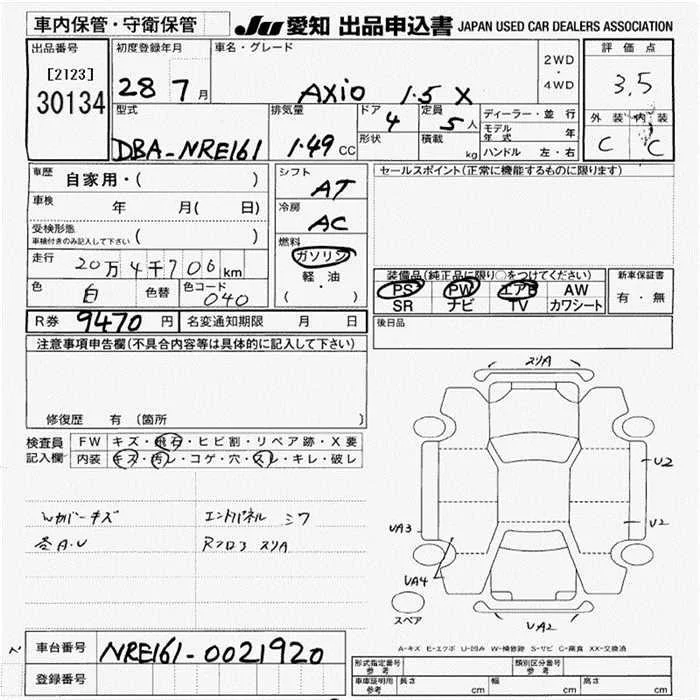 車内保管・守衛保管
JU 愛知 出品申込書 JAPAN USED CAR DEALERS ASSOCIATION
出品番号
[2123]
30134
初度登録年月
28 7月
車名・グレード
AXio 1.5 X
2WD
・
4WD
評価点
3.5
外装 内装
C C
型式
DBA-NRE161
排気量
1.49 CC
ドア
4
形状
定員
5人
積載
kg
ディーラー・並行
モデル年式 年
ハンドル 左・右
車歴 自家用・( )
車検 年 月( 日)
受検形態
車検付きのみ記入して下さい ( )
走行 20万4千706km
色 白 色替 色コード 040
シフト
AT
冷房
AC
燃料
ガソリン
軽・油
( )
セールスポイント(正常に機能するものに限ります)
装備品(純正品に限り○をつけてください)
PS PW エアB AW
SR ナビ TV カワシート
新車保証書
有・無
R券 9470円 名変通知期限 月 日
後日品
注意事項申告欄(不具合内容等は具体的に記入して下さい)
修復歴 有 〔箇所 〕
検査員記入欄
FW キズ・飛石・ヒビ割・リペア跡・X要
内装 キズ・汚レ・コゲ・穴・スレ・キレ・破レ
スリA
U2
U2
UA3
UA4
UA2
スペア
エンドパネル シワ
A-キズ E-エクボ U-凹み W-補修跡 S-サビ C-腐食 XX-交換済
車台番号 NRE161-0021920
登録番号
形式指定番号 参考
類別区分番号 参考
車庫証明用 参考 長さ cm 幅 cm 高さ cm